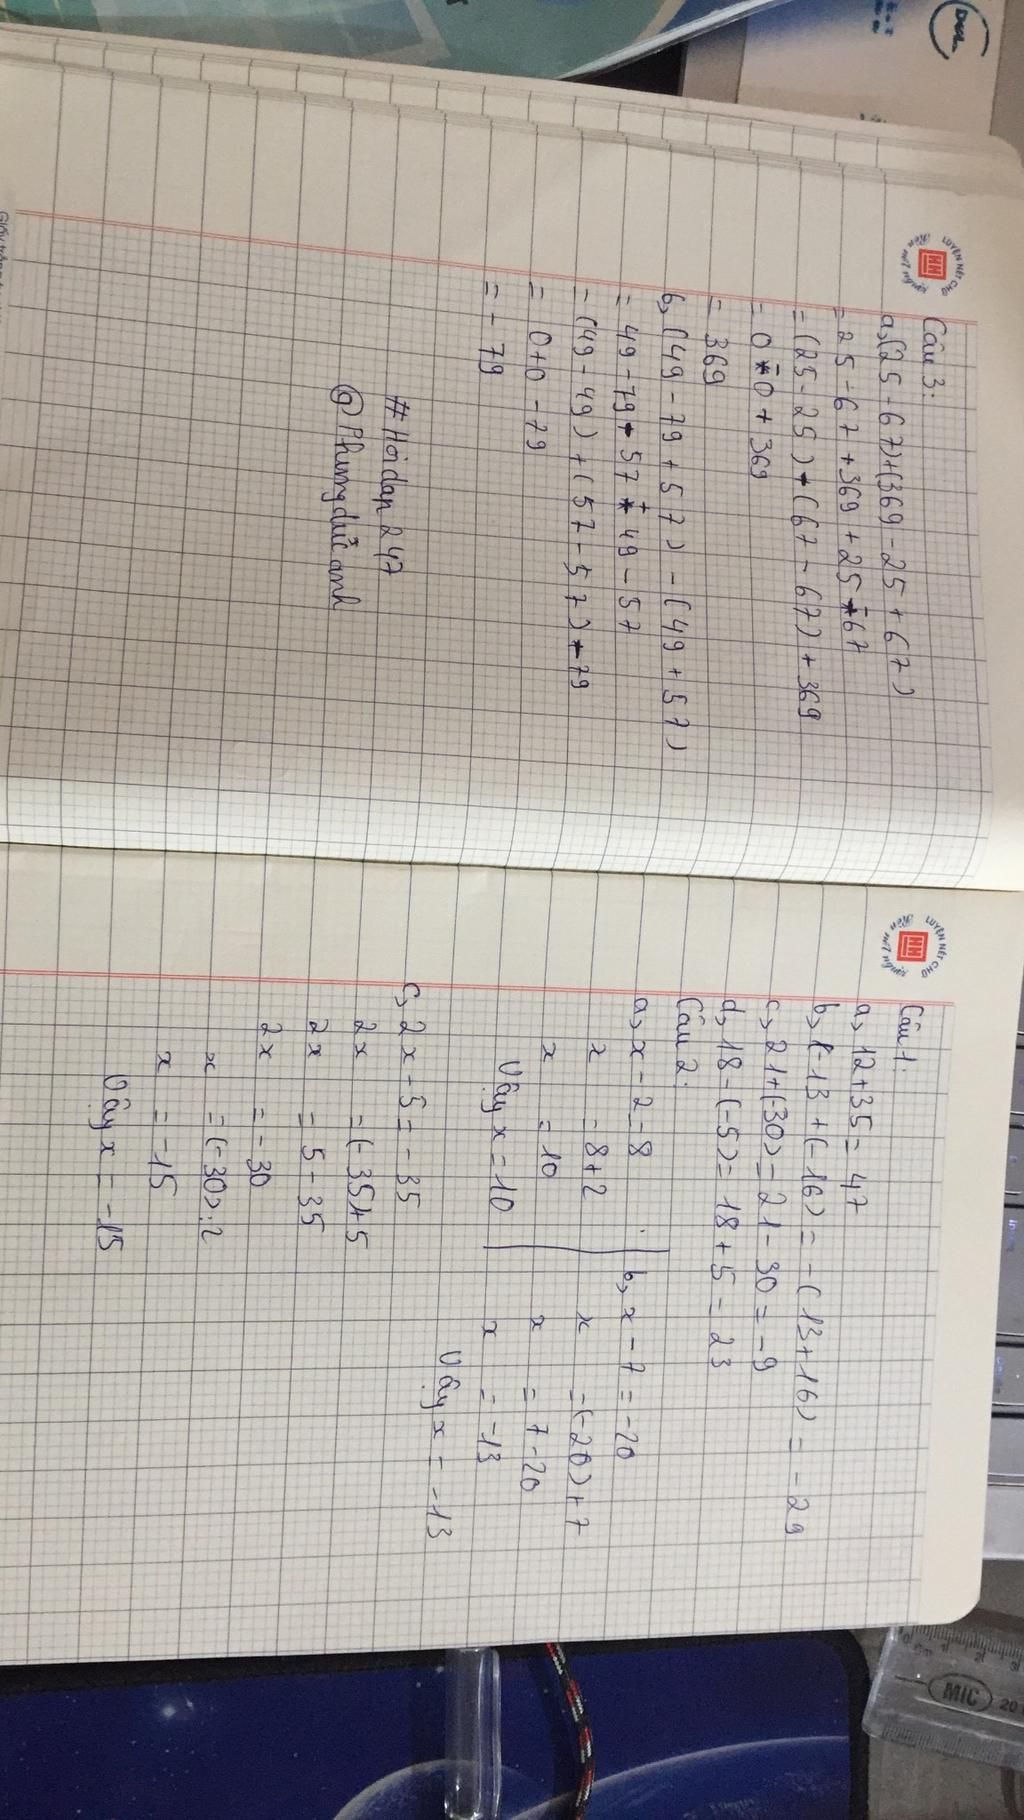 Câu 3:
a, (25 - 67) + (369 - 25 + 67)
= 25 - 67 + 369 + 25 - 67
= (25 - 25) + (67 - 67) + 369
= 0 - 0 + 369
= 369
b, (49 - 79 + 57) - (49 + 57)
= 49 - 79 + 57 + 49 - 57
= (49 - 49) + (57 - 57) - 79
= 0 + 0 - 79
= - 79
# Hoidap 247
@ Phungducanh
LUYỆN NÉT CHỮ
Rèn nết người
HM
Câu 1:
a, 12 + 35 = 47
b, (-13 + (-16) = - (13 + 16) = - 29
c, 21 + (-30) = 21 - 30 = -9
d, 18 - (-5) = 18 + 5 = 23
Câu 2:
a, x - 2 = 8
x = 8 + 2
x = 10
Vậy x = 10
b, x - 7 = -20
x = (-20) + 7
x = 7 - 20
x = -13
Vậy x = -13
c, 2x - 5 = - 35
2x = (-35) + 5
2x = 5 - 35
2x = - 30
x = (-30) : 2
x = -15
Vậy x = -15
LUYỆN NÉT CHỮ
Rèn nết người
HM
DELL
MIC
20